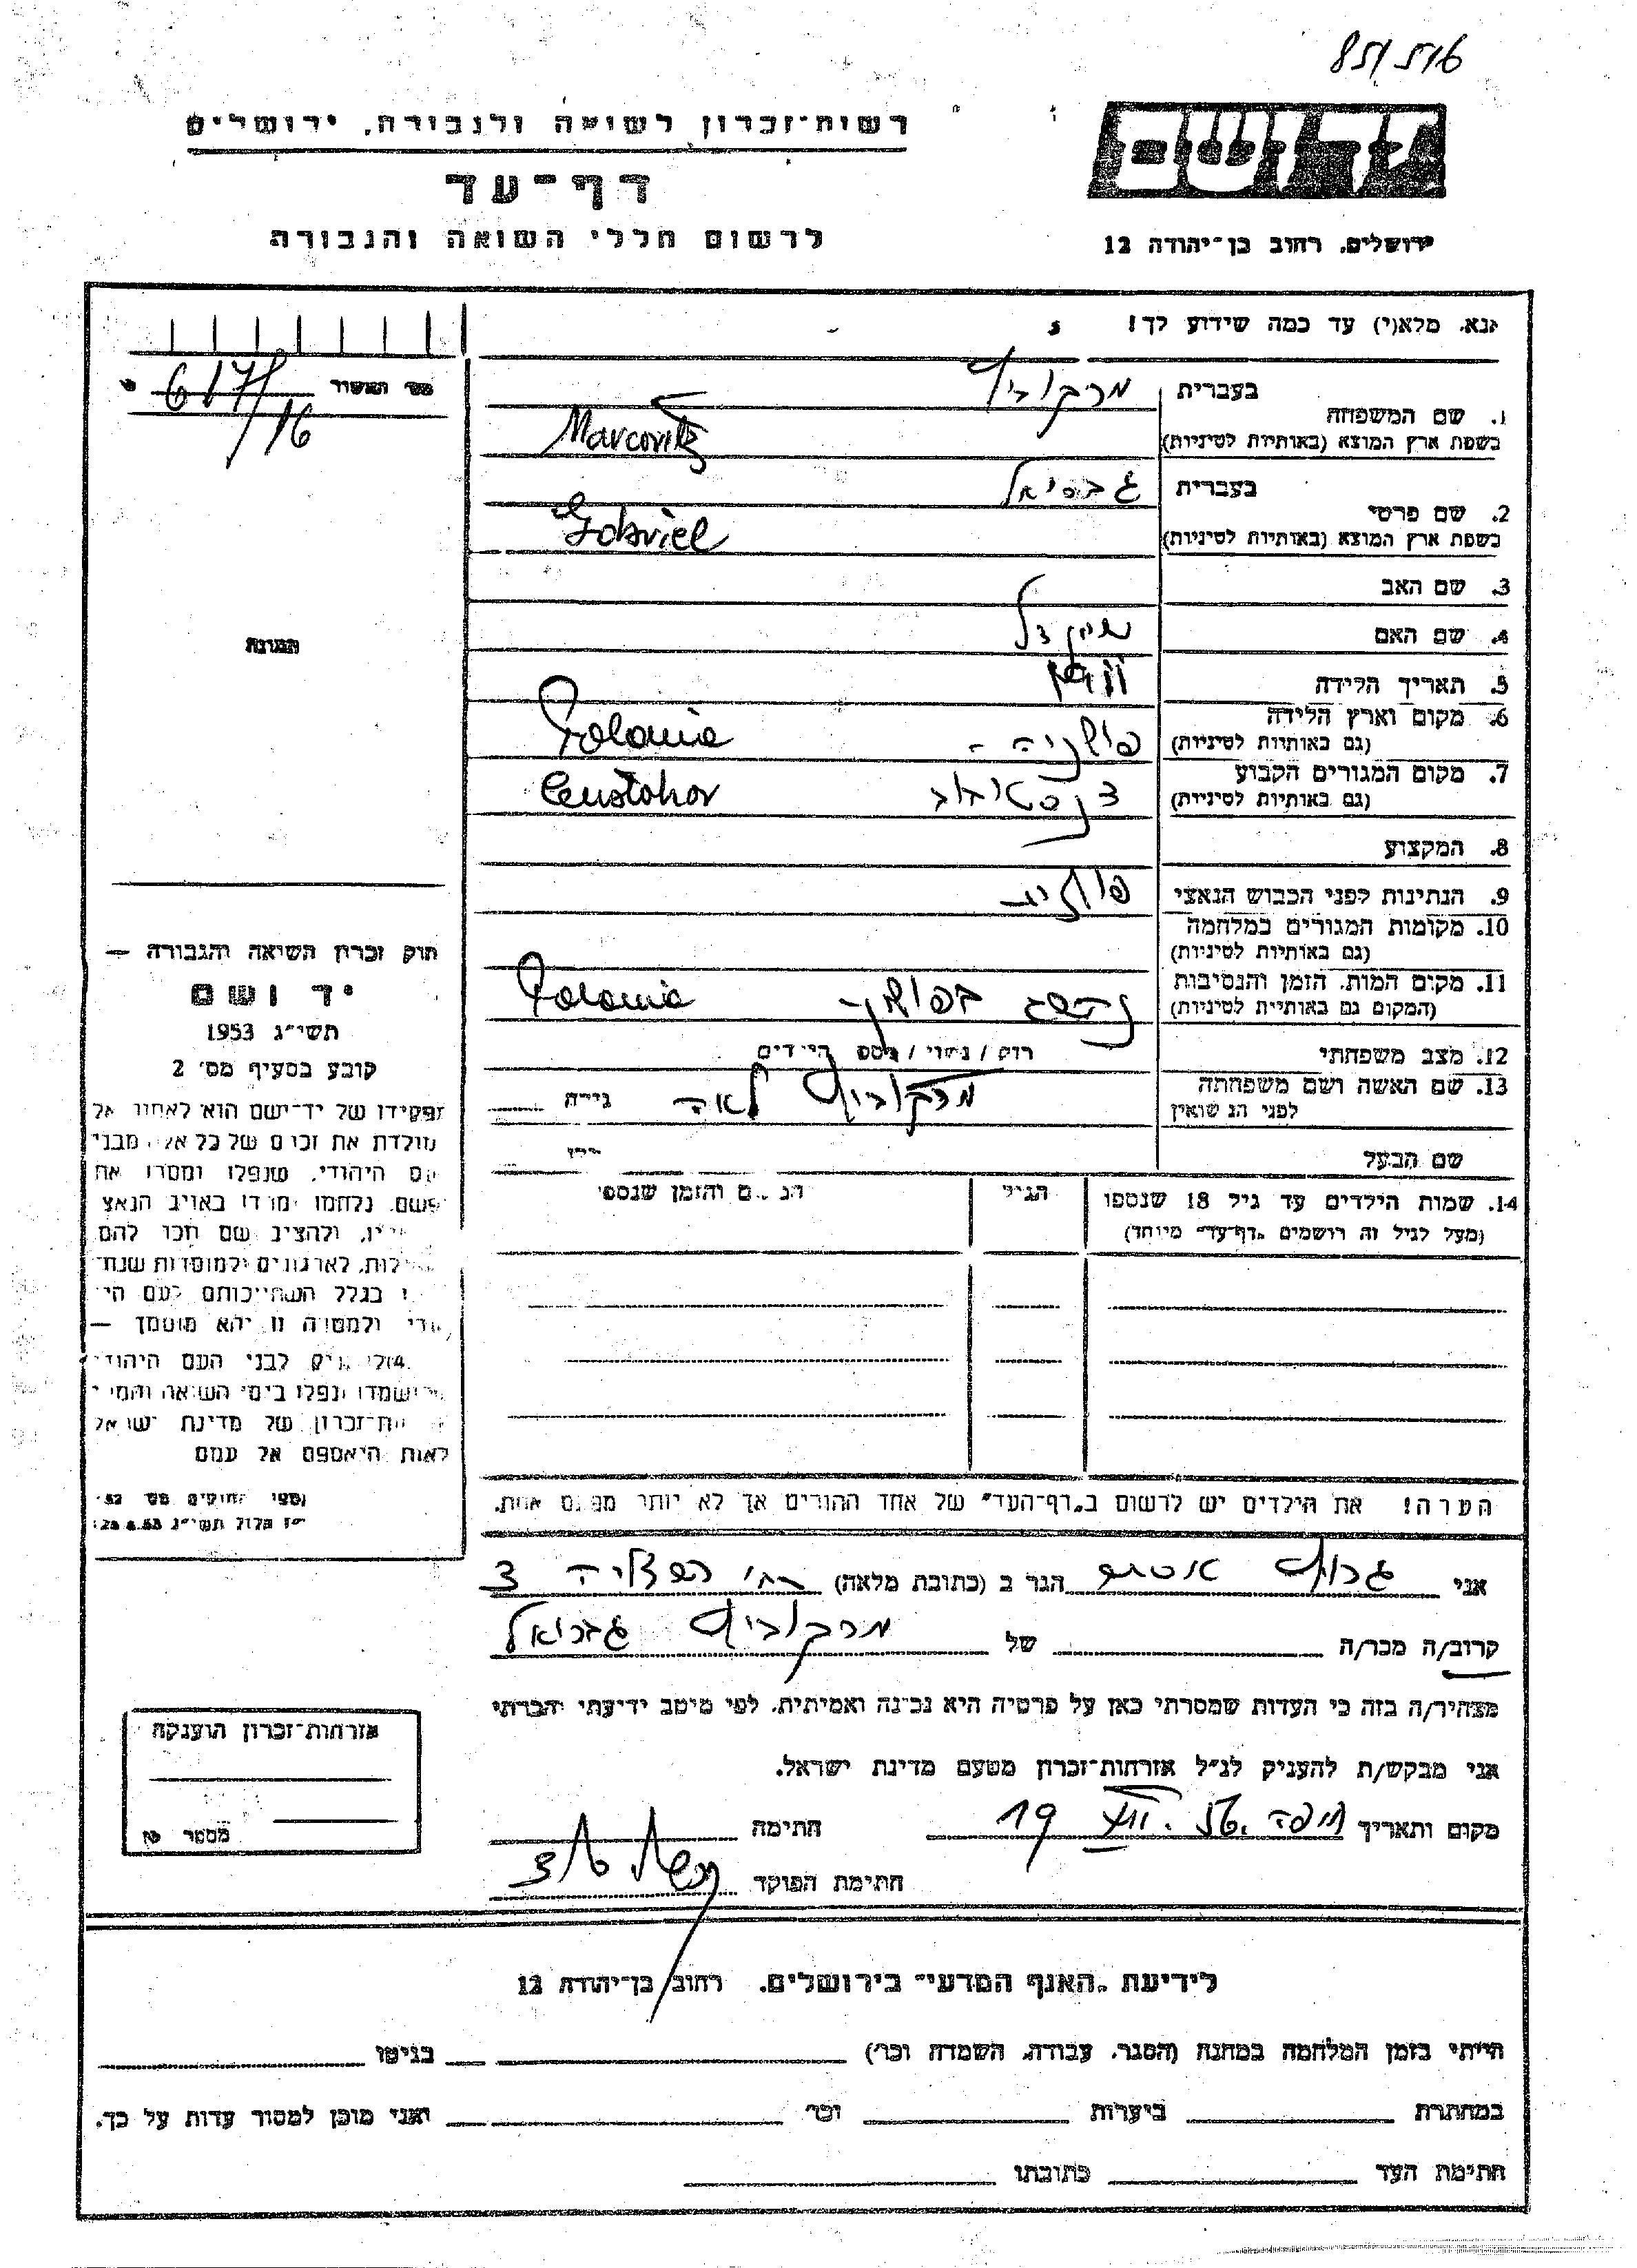 851/516
רשות-זכרון לשואה ולגבורה, ירושלים
דף-עד
לרשום חללי השואה והגבורה
ידושם
ירושלים, רחוב בן-יהודה 12
אנא, מלא(י) עד כמה שידוע לך!
617/16
1. שם המשפחה
בעברית מרקוביץ
בשפת ארץ המוצא (באותיות לטיניות) Marcovitz
2. שם פרטי
בעברית גבריאל
בשפת ארץ המוצא (באותיות לטיניות) Gabriel
3. שם האב
4. שם האם שיינדל
5. תאריך הלידה
6. מקום וארץ הלידה
(גם באותיות לטיניות) פולניה - Polonia
7. מקום המגורים הקבוע
(גם באותיות לטיניות) צנסטוהוב Censtohov
8. המקצוע
9. הנתינות לפני הכבוש הנאצי פולנית
10. מקומות המגורים במלחמה
(גם באותיות לטיניות)
11. מקום המות, הזמן והנסיבות
(המקום גם באותיות לטיניות) נהרג בפולין- Polonia
12. מצב משפחתי רוק / נשוי / מספ הילדים
13. שם האשה ושם משפחתה
לפני הנשואין מרקוביץ לאה גילה
שם הבעל
14. שמות הילדים עד גיל 18 שנספו
(מעל לגיל זה רושמים "דף-עד" מיוחד)
הגיל
המקום והזמן שנספו
הערה! את הילדים יש לרשום ב"דף-העד" של אחד ההורים אך לא יותר מפעם אחת.
התמונה
חוק זכרון השואה והגבורה —
יד ושם
תשי"ג 1953
קובע בסעיף מס' 2
תפקידו של יד-ושם הוא לאסוף אל
מולדת את זכרם של כל אלה מבני
עם היהודי, שנפלו ומסרו את
נפשם, נלחמו ומרדו באויב הנאצי
ולהציב שם וזכר להם
לקהילות, לארגונים ולמוסדות שנחרבו
בגלל השתייכותם לעם היהודי
ולמטרה זו יהא מוסמך —
להעניק לבני העם היהודי
שהושמדו ונפלו בימי השואה והמרי
אזרחות-זכרון של מדינת ישראל
לאות היאספם אל עמם
אני הגר ב (כתובת מלאה) הרצליה 3
קרוב/ה מכר/ה של מרקוביץ גבריאל
מצהיר/ה בזה כי העדות שמסרתי כאן על פרטיה היא נכונה ואמיתית, לפי מיטב ידיעתי והכרתי
אני מבקש/ת להעניק לנ"ל אזרחות-זכרון מטעם מדינת ישראל.
מקום ותאריך חיפה חתימה
חתימת הפוקד
אזרחות-זכרון הוענקה
מספר
לידיעת "האגף המדעי" בירושלים, רחוב בן-יהודה 12
הייתי בזמן המלחמה במחנה (הסגר, עבודה, השמדה וכו') בגיטו
במחתרת ביערות וכו' ואני מוכן למסור עדות על כך.
חתימת העד כתובתו